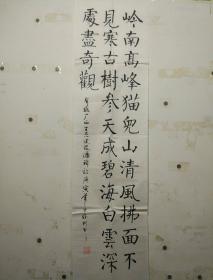 岭南高峰猫儿山清風拂面不
見寒古樹参天成碧海白雲深
處盡奇觀